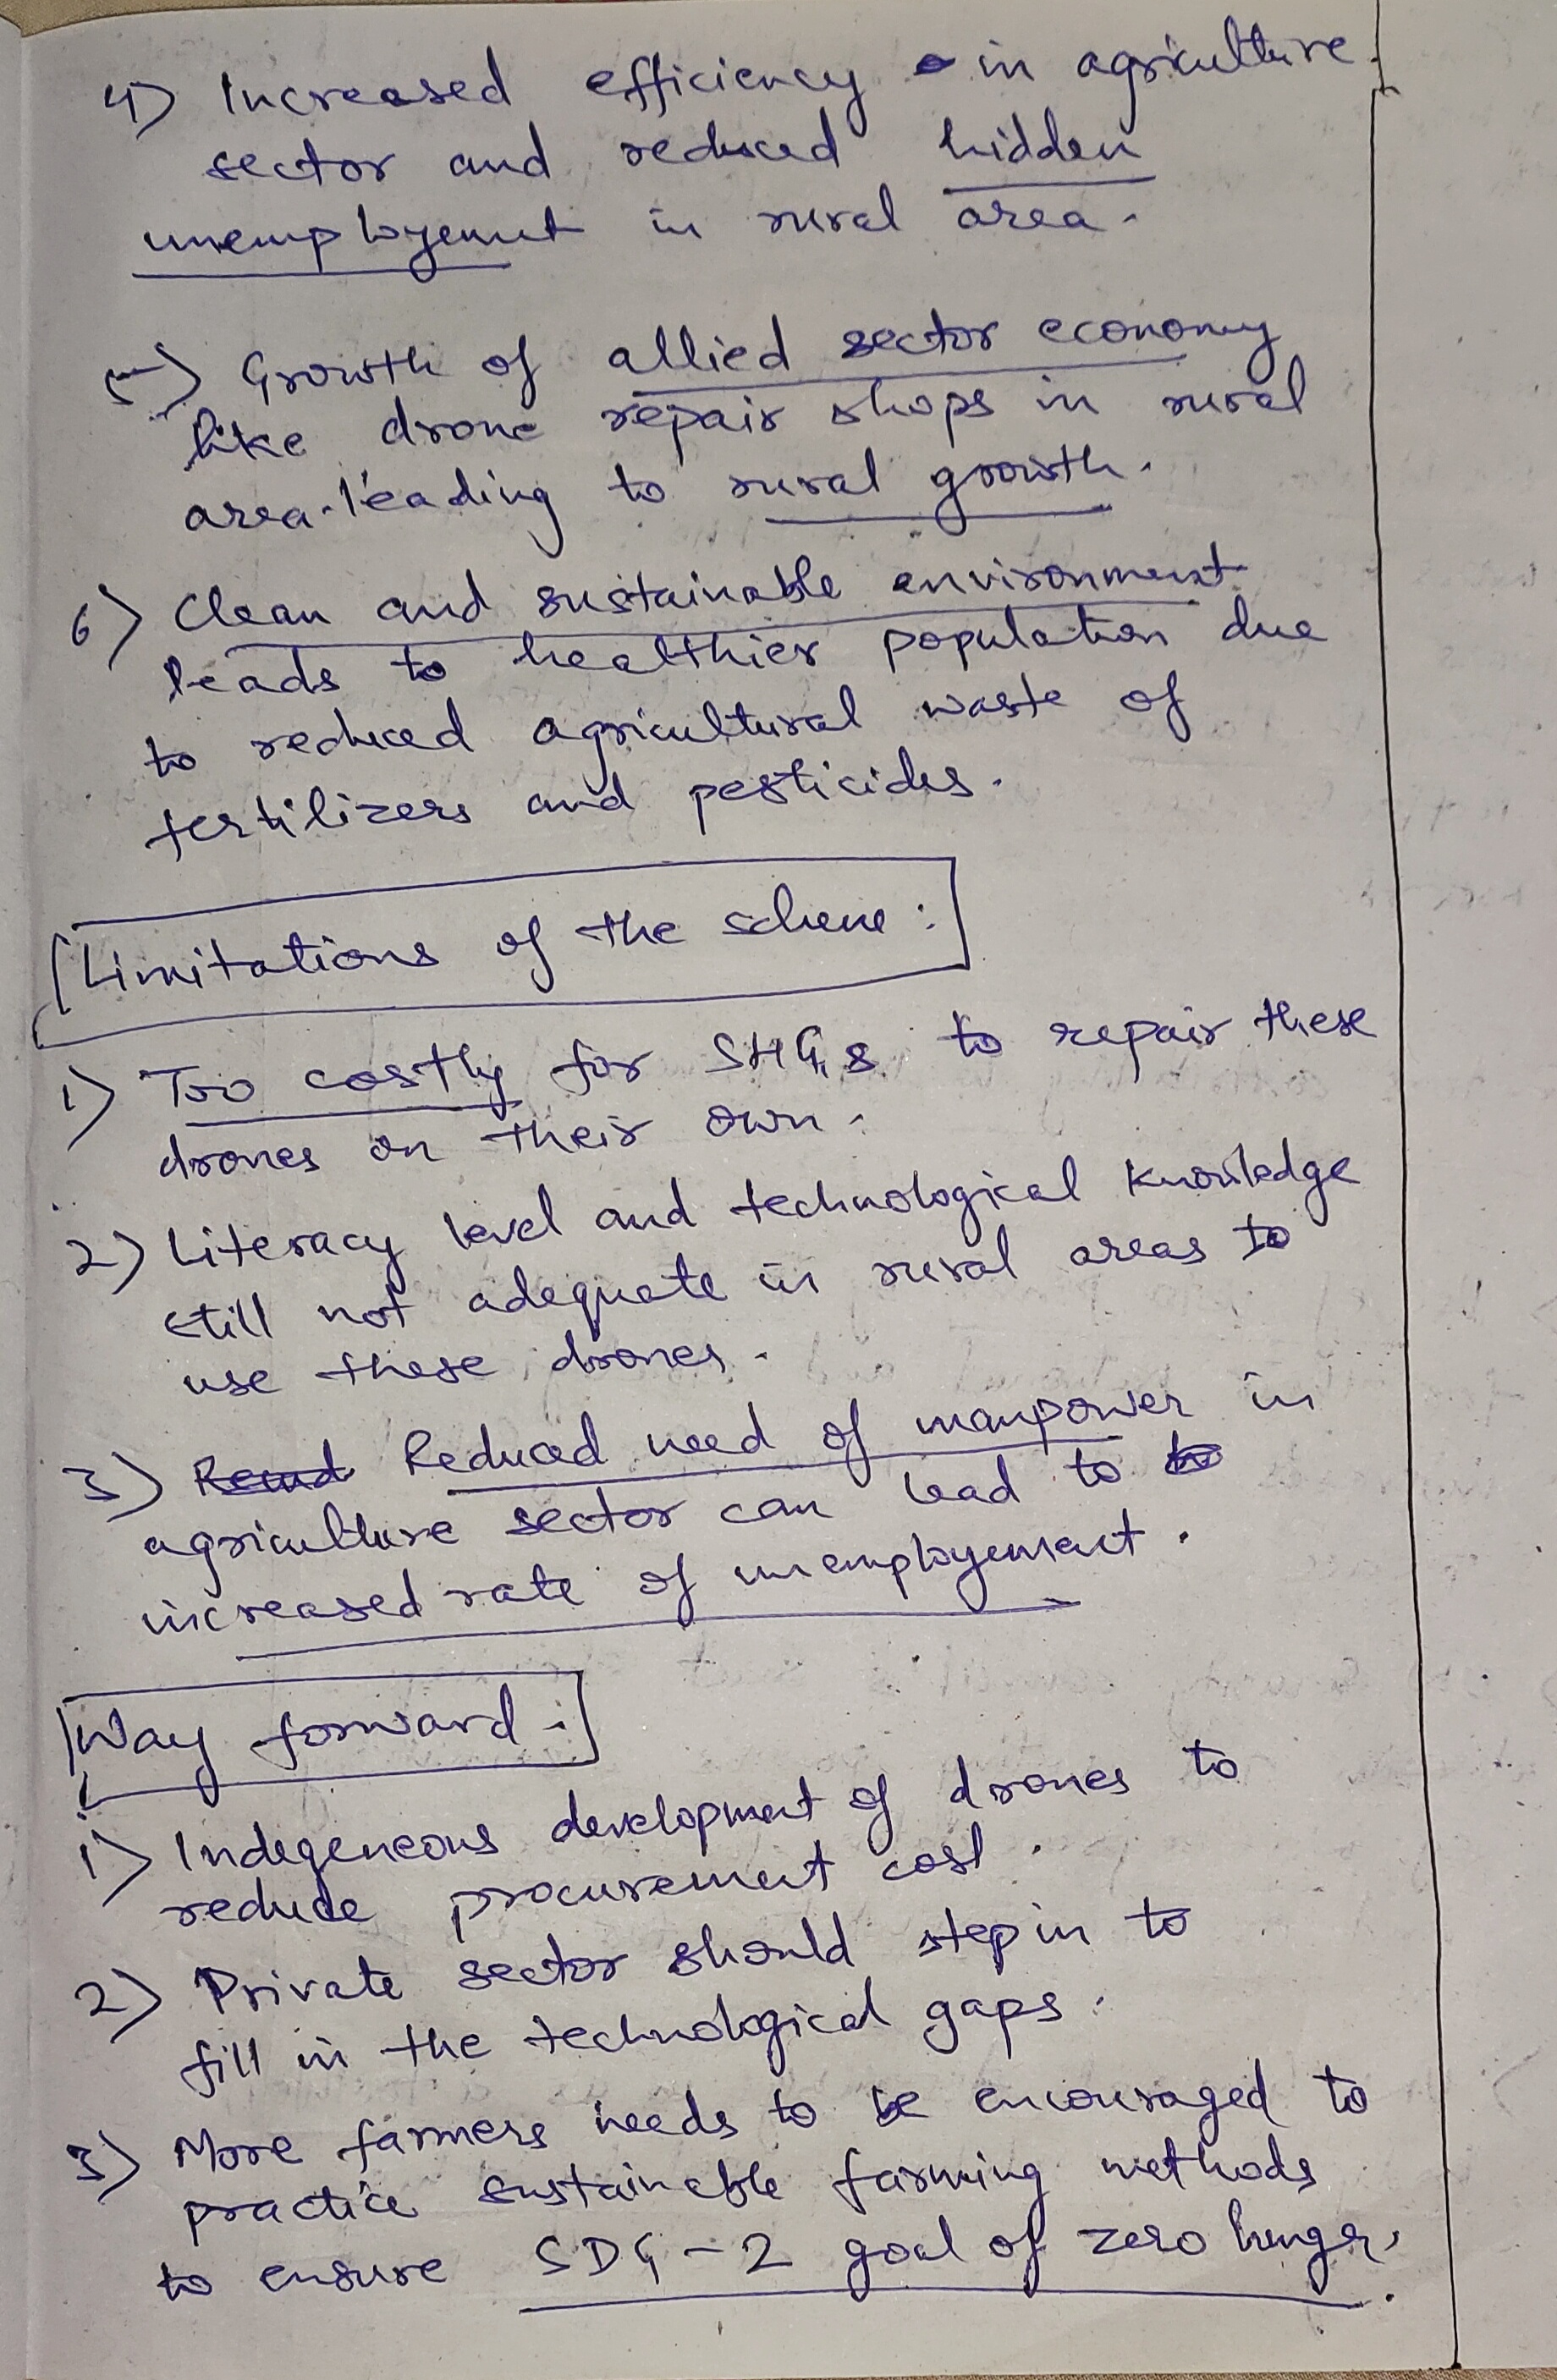 4) Increased efficiency in agriculture
sector and reduced hidden
unemployement in rural area.
5) Growth of allied sector economy
like drone repair shops in rural
area leading to rural growth.
6) Clean and sustainable environment
leads to healthier population due
to reduced agricultural waste of
fertilizers and pesticides.
Limitations of the scheme:
1) Too costly for SHGs to repair these
drones on their own.
2) Literacy level and technological knowledge
still not adequate in rural areas to
use these drones.
3) Reduced need of manpower in
agriculture sector can lead to
increased rate of unemployement.
Way forward:
1) Indegeneous development of drones to
reduce procurement cost.
2) Private sector should step in to
fill in the technological gaps.
3) More farmers needs to be encouraged to
practice sustainable farming methods
to ensure SDG-2 goal of zero hunger.